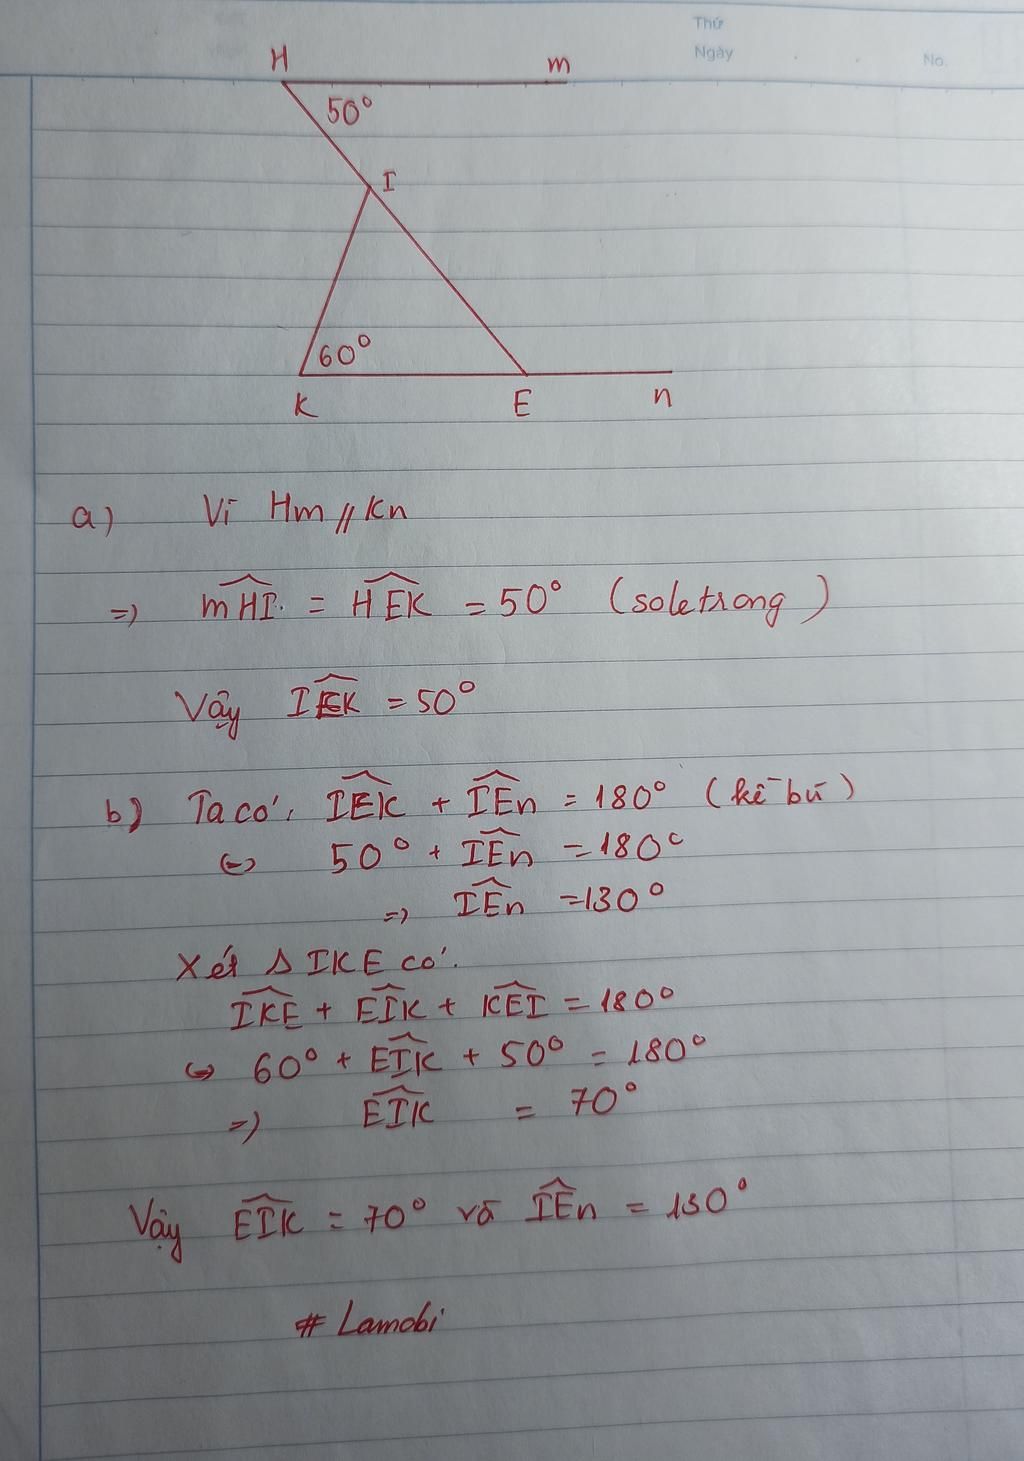 Thứ
Ngày
No.
H m
50°
I
60°
K E n
a) Vì Hm // Kn
=> mHI = HEK = 50° (so le trong)
Vậy IEK = 50°
b) Ta có: IEK + IEn = 180° (kề bù)
<=> 50° + IEn = 180°
=> IEn = 130°
Xét Δ IKE có:
IKE + EIK + KEI = 180°
<=> 60° + EIK + 50° = 180°
=> EIK = 70°
Vậy EIK = 70° và IEn = 130°
# Lamobi